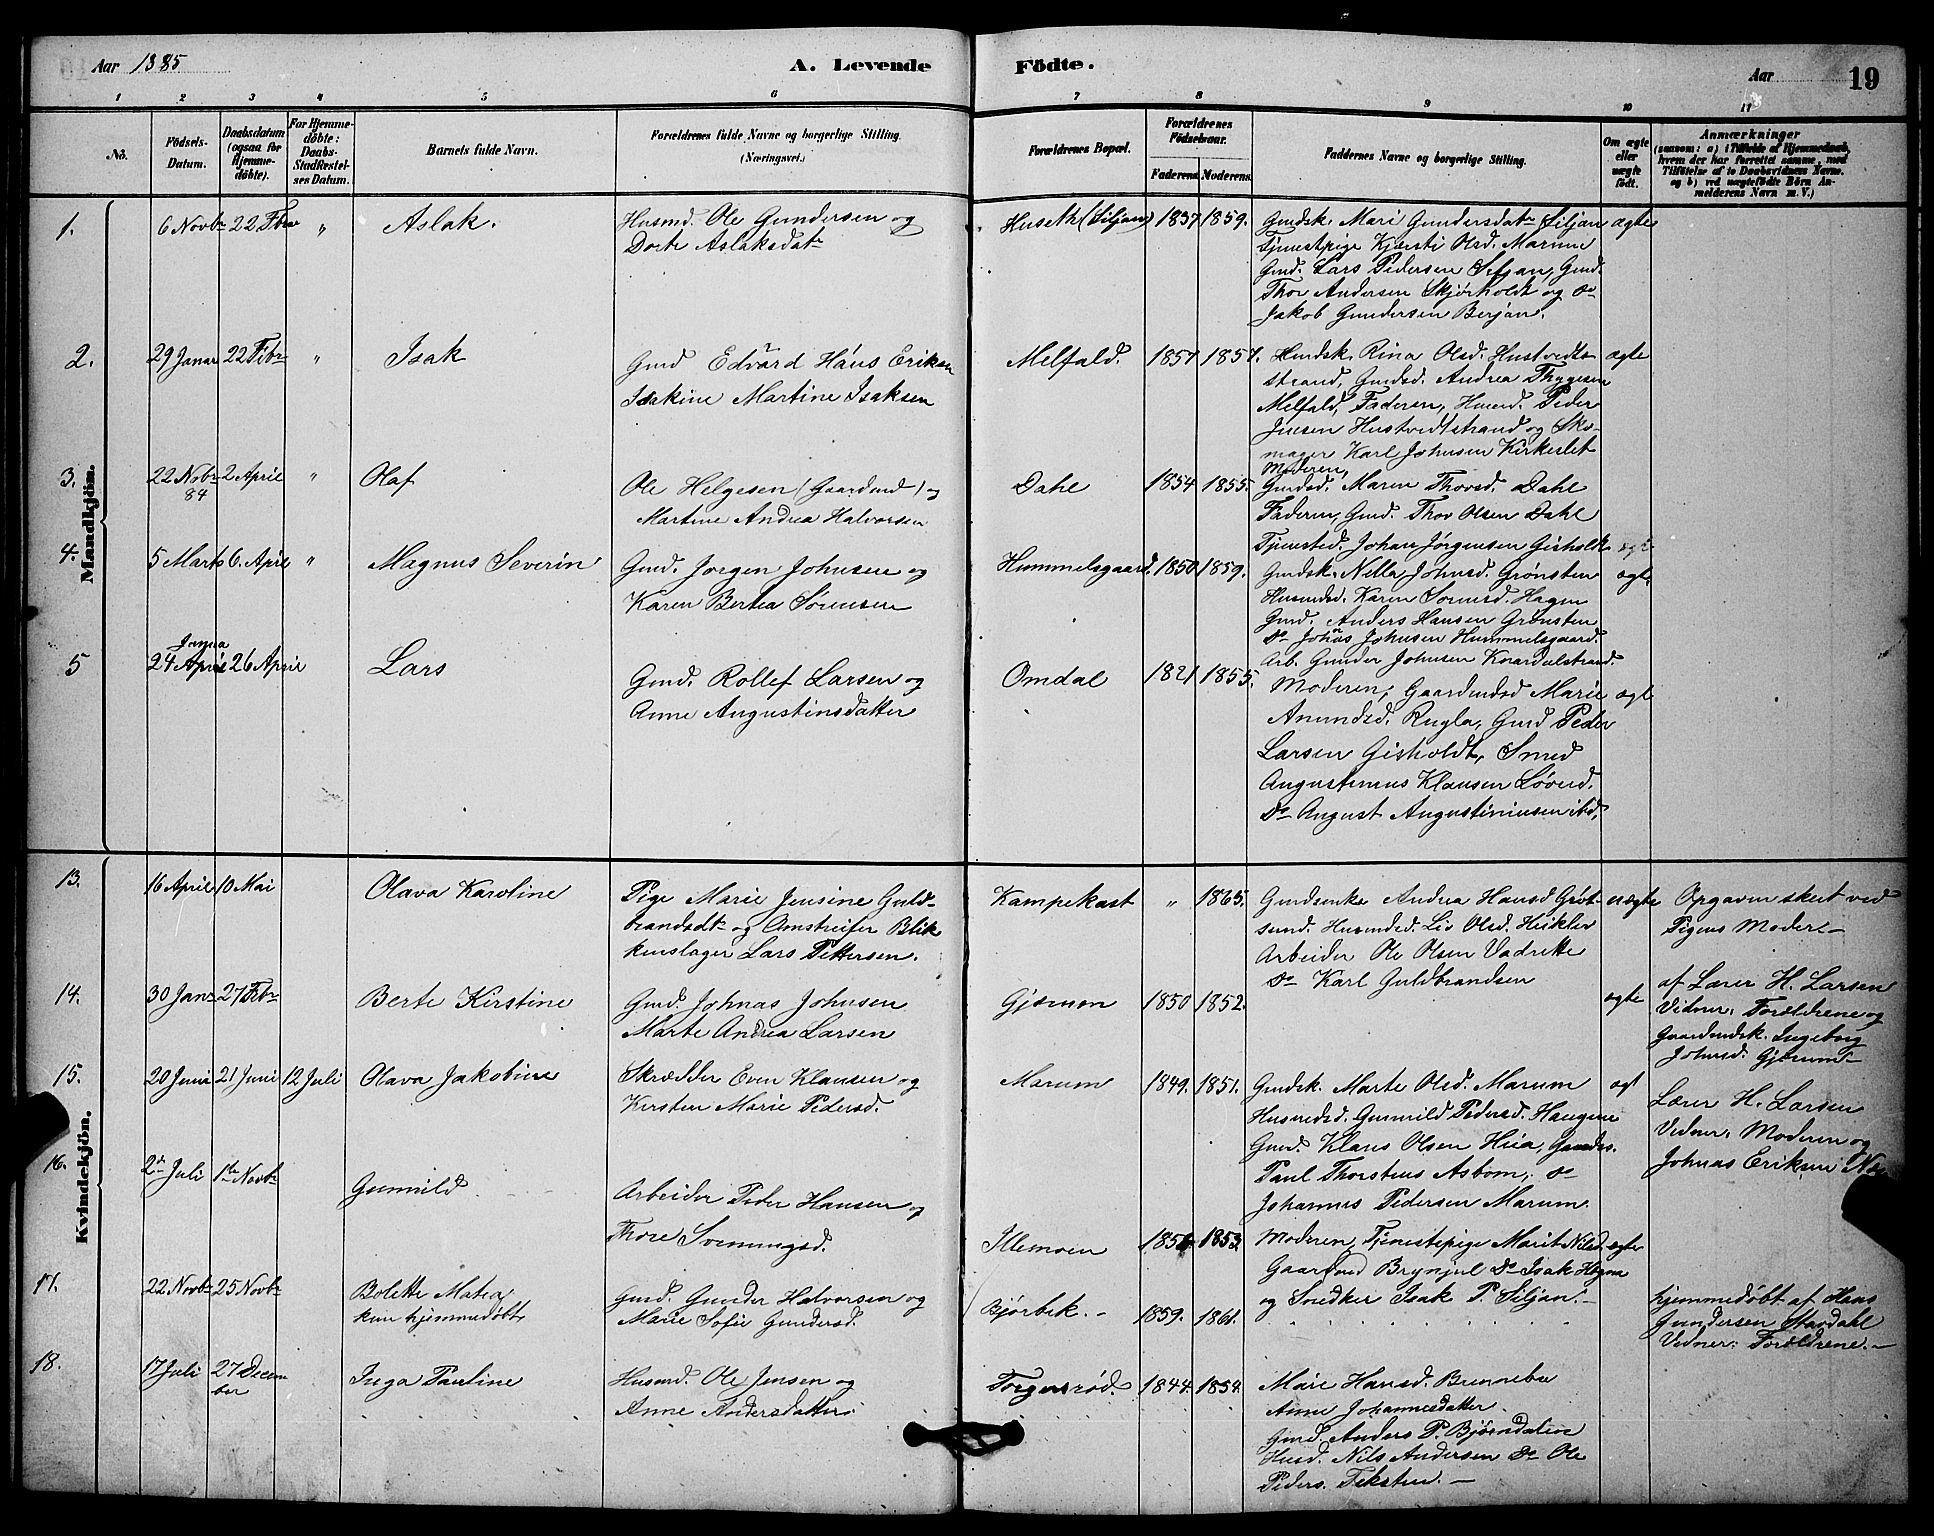 Aar 1885
A. Levende
Födte.
Aar
19
1 2 3 4 5 6 7 8 9 10 11
No.
Födsels-
Datum.
Daabsdatum
(ogsaa for
Hjemme-
döbte).
For Hjemme-
döbte:
Daabs-
Stadfæstel-
ses Datum.
Barnets fulde Navn.
Forældrenes fulde Navne og borgerlige Stilling.
(Næringsvei.)
Forældrenes Bopæl.
Forældrenes
Födselsaar.
Faderens. Moderens.
Faddernes Navne og borgerlige Stilling.
Om ægte
eller
uægte
födt.
Anmærkninger
(saasom: a) i Tilfælde af Hjemmedaab,
hvem der har forrettet samme, med
Tilföielse af to Daabsvidners Navne,
og b) ved uægtefödte Börn An-
melderens Navn m. V.)
Mandkjön.
1. 6 Novbr 22 Fbr " Aslak.
Husmd. Ole Gundersen og
Dorte Aslaksdatr
Huseth (Siljan) 1837 1859.
Gmdsk. Mari Gundersdatr (Siljan ægte
Tjenestpige Kjersti Olsd. Marum
Gmd. Lars Pedersen Seljan, Gmd.
Thor Andersen Skjørholdt og do
Jakob Gundersen Berjan.
2. 29 Januar 22 Febr " Isak
Gmd Edvard Hans Eriksen
Isakine Martine Isaksen
Melfald. 1857 1857.
Husdsk. Rina Olsd. Hustvedt-
strand, Gmdsd. Andrea Thygesen
Melfald, Faderen, Husmd. Peder
Jensen Hustvedtstrand og Sko-
mager Karl Johnsen Kirkeslet
ægte
3. 22 Novbr 84 2 April " Olaf
Ole Helgesen (Gaardmd) og
Martine Andrea Halvorsen
Dahl 1854 1855.
Moderen,
Gmdsd. Maren Thorsd. Dahl
Faderen, Gmd. Thor Olsen Dahl
Tjenested. Johan Jørgensen Gisholt ægt
4. 5 Marts 6 April " Magnus Severin
Gmd. Jørgen Johnsen og
Karen Bertea Sørensen
Hummelsgaard. 1850 1859.
Gmdsk. Nella Johnsd. Grønsten ægt.
Husmdsd. Karen Sørensd. Hagen
Gmd. Anders Hansen Grønsten
do Johas Johnsen Hummelsgaard.
Arb. Gunder Johnsen Knardalstrand.
5 24 April 26 April Lars
Gmd. Rollef Larsen og
Anne Augustinsdatter
Omdal 1821 1855.
Moderen, Gaardmdsd Marie ægt
Anundsd. Rugla, Gmd Peder
Larsen Gisholdt, Smed
Augustinius Klausen Løverd.
do August Augustiniusen ibd.
Kvindekjön.
13. 16 April 10 Mai Olava Karoline
Pige Marie Jensine Guld-
brandsdtr og Omstreifer Blik-
kenslager Lars Pettersen.
Kampekast " 1865.
Gmdsenke Andrea Hansd Grøt- uægte
sund. Husmdsd. Liv Olsd. Heiklev
Arbeider Ole Olsen Vadrette
do Karl Guldbrandsen
Opgaven skeet ved
Pigens Moder
14. 30 Janr 27 Febr Berte Kirstine
Gmd. Johnas Johnsen
Marte Andrea Larsen
Gjerum 1850 1852.
ægte
af Lærer H. Larsen
Vidner: Forældrene og
Gaardmdsk. Ingeborg
Johnsd. Gjerum
15. 20 Juni 21 Juni 12 Juli Olava Jakobine
Skrædder Even Klausen og
Kirsten Marie Pedersd.
Marum 1849. 1851.
Gmdsk. Marte Olsd. Marum ægt
Husmdsd. Gunnild Pedersd. Haugene
Gmd. Klaus Olsen Heia, Gmdss.
Paul Thorstens Asbom, do
Johannes Pedersen Marum.
Lærer H. Larsen
Vidner: Moderen og
Johnas Eriksen
16. 2de Juli 1te Novbr Gunnild
Arbeider Peder Hansen og
Thore Svenningsd.
Illemoen 1856 1853.
Moderen, Tjenestepige Marit Nilsd. ægte
Gaardmd Brynjul do Isak Høgna
og Snedker Isak P. Siljan.
17. 22 Novbr 25 Novbr Bolette Matea
kun hjemmedøbt
Gmd. Gunder Halvorsen og
Marie Sofie Gundersd.
Bjørbek. 1859. 1861.
hjemmedøbt af Hans
Gundersen Stardahl
Vidner: Forældrene.
18. 17 Juli 27 Decem-
ber
Inga Pauline
Husmd. Ole Jensen og
Anne Andersdatter
Torgersrød. 1844. 1854.
Mare Hansd. Brennebu
Anne Johannesdatter
Gmd. Anders P. Bjørndalen
Husd. Nils Andersen do Ole
Peders. Teksten.